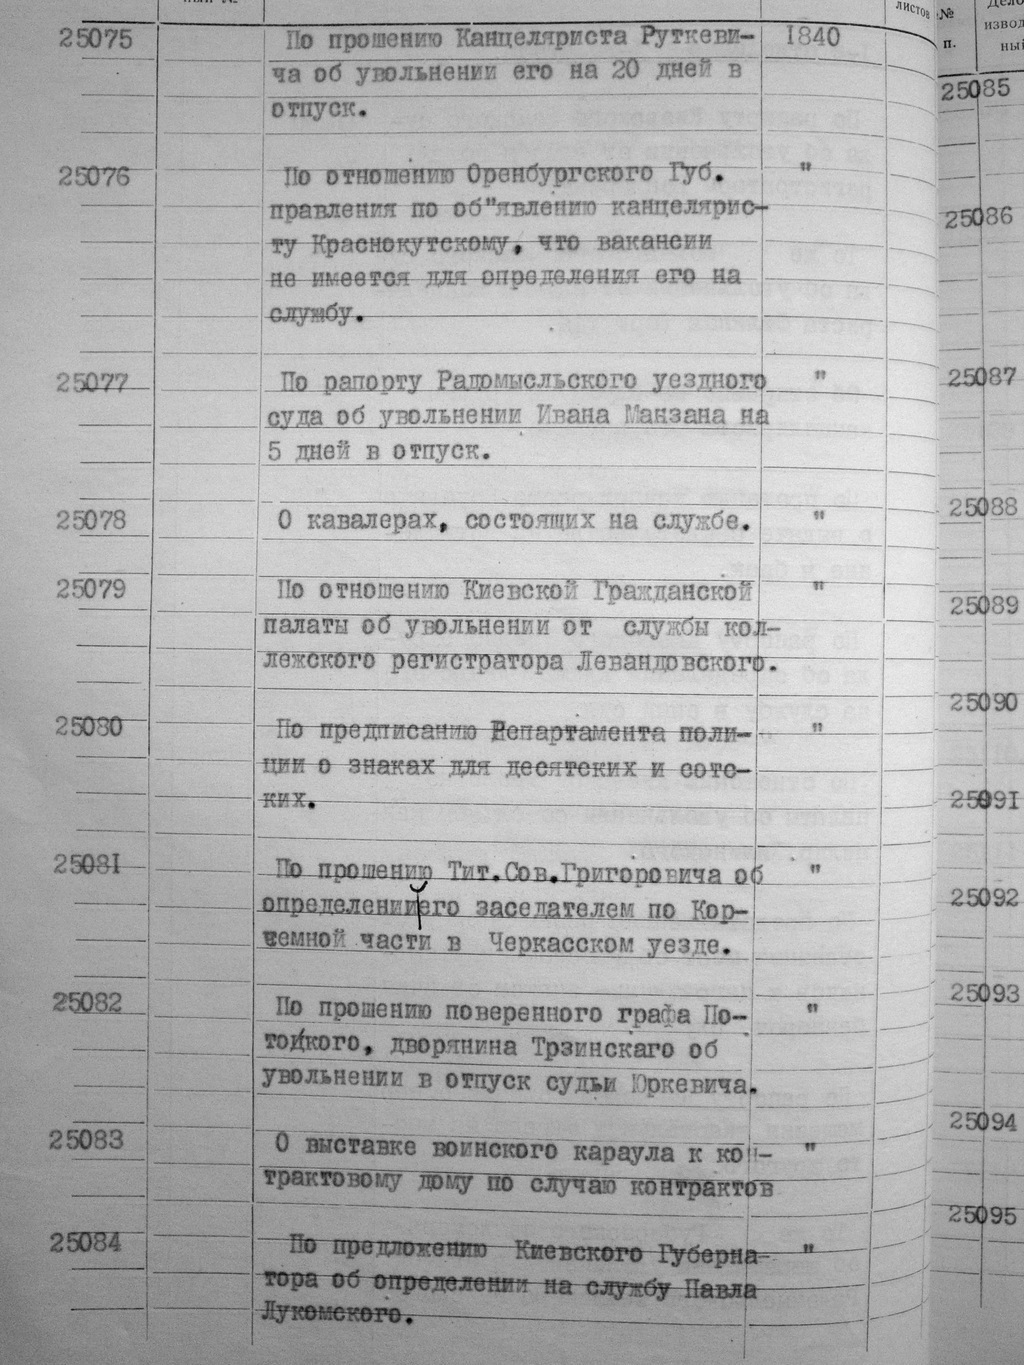 листов
№
п.
25075 По прошению Канцеляриста Руткеви- 1840
ча об увольнении его на 20 дней в
отпуск.
25076 По отношению Оренбургского Губ. "
правления по об"явлению канцелярис-
ту Краснокутскому, что вакансии
не имеется для определения его на
службу.
25077 По рапорту Радомысльского уездного "
суда об увольнении Ивана Манзана на
5 дней в отпуск.
25078 О кавалерах, состоящих на службе. "
25079 По отношению Киевской Гражданской "
палаты об увольнении от службы кол-
лежского регистратора Левандовского.
25080 По предписанию Департамента поли- "
ции о знаках для десятских и сотс-
ких.
25081 По прошению Тит.Сов.Григоровича об "
определении его заседателем по Кор-
чемной части в Черкасском уезде.
25082 По прошению поверенного графа По- "
тоцкого, дворянина Трзинскаго об
увольнении в отпуск судьи Юркевича.
25083 О выставке воинского караула к кон- "
трактовому дому по случаю контрактов
25084 По предложению Киевского Губерна- "
тора об определении на службу Павла
Лукомского.
25085
25086
25087
25088
25089
25090
25091
25092
25093
25094
25095